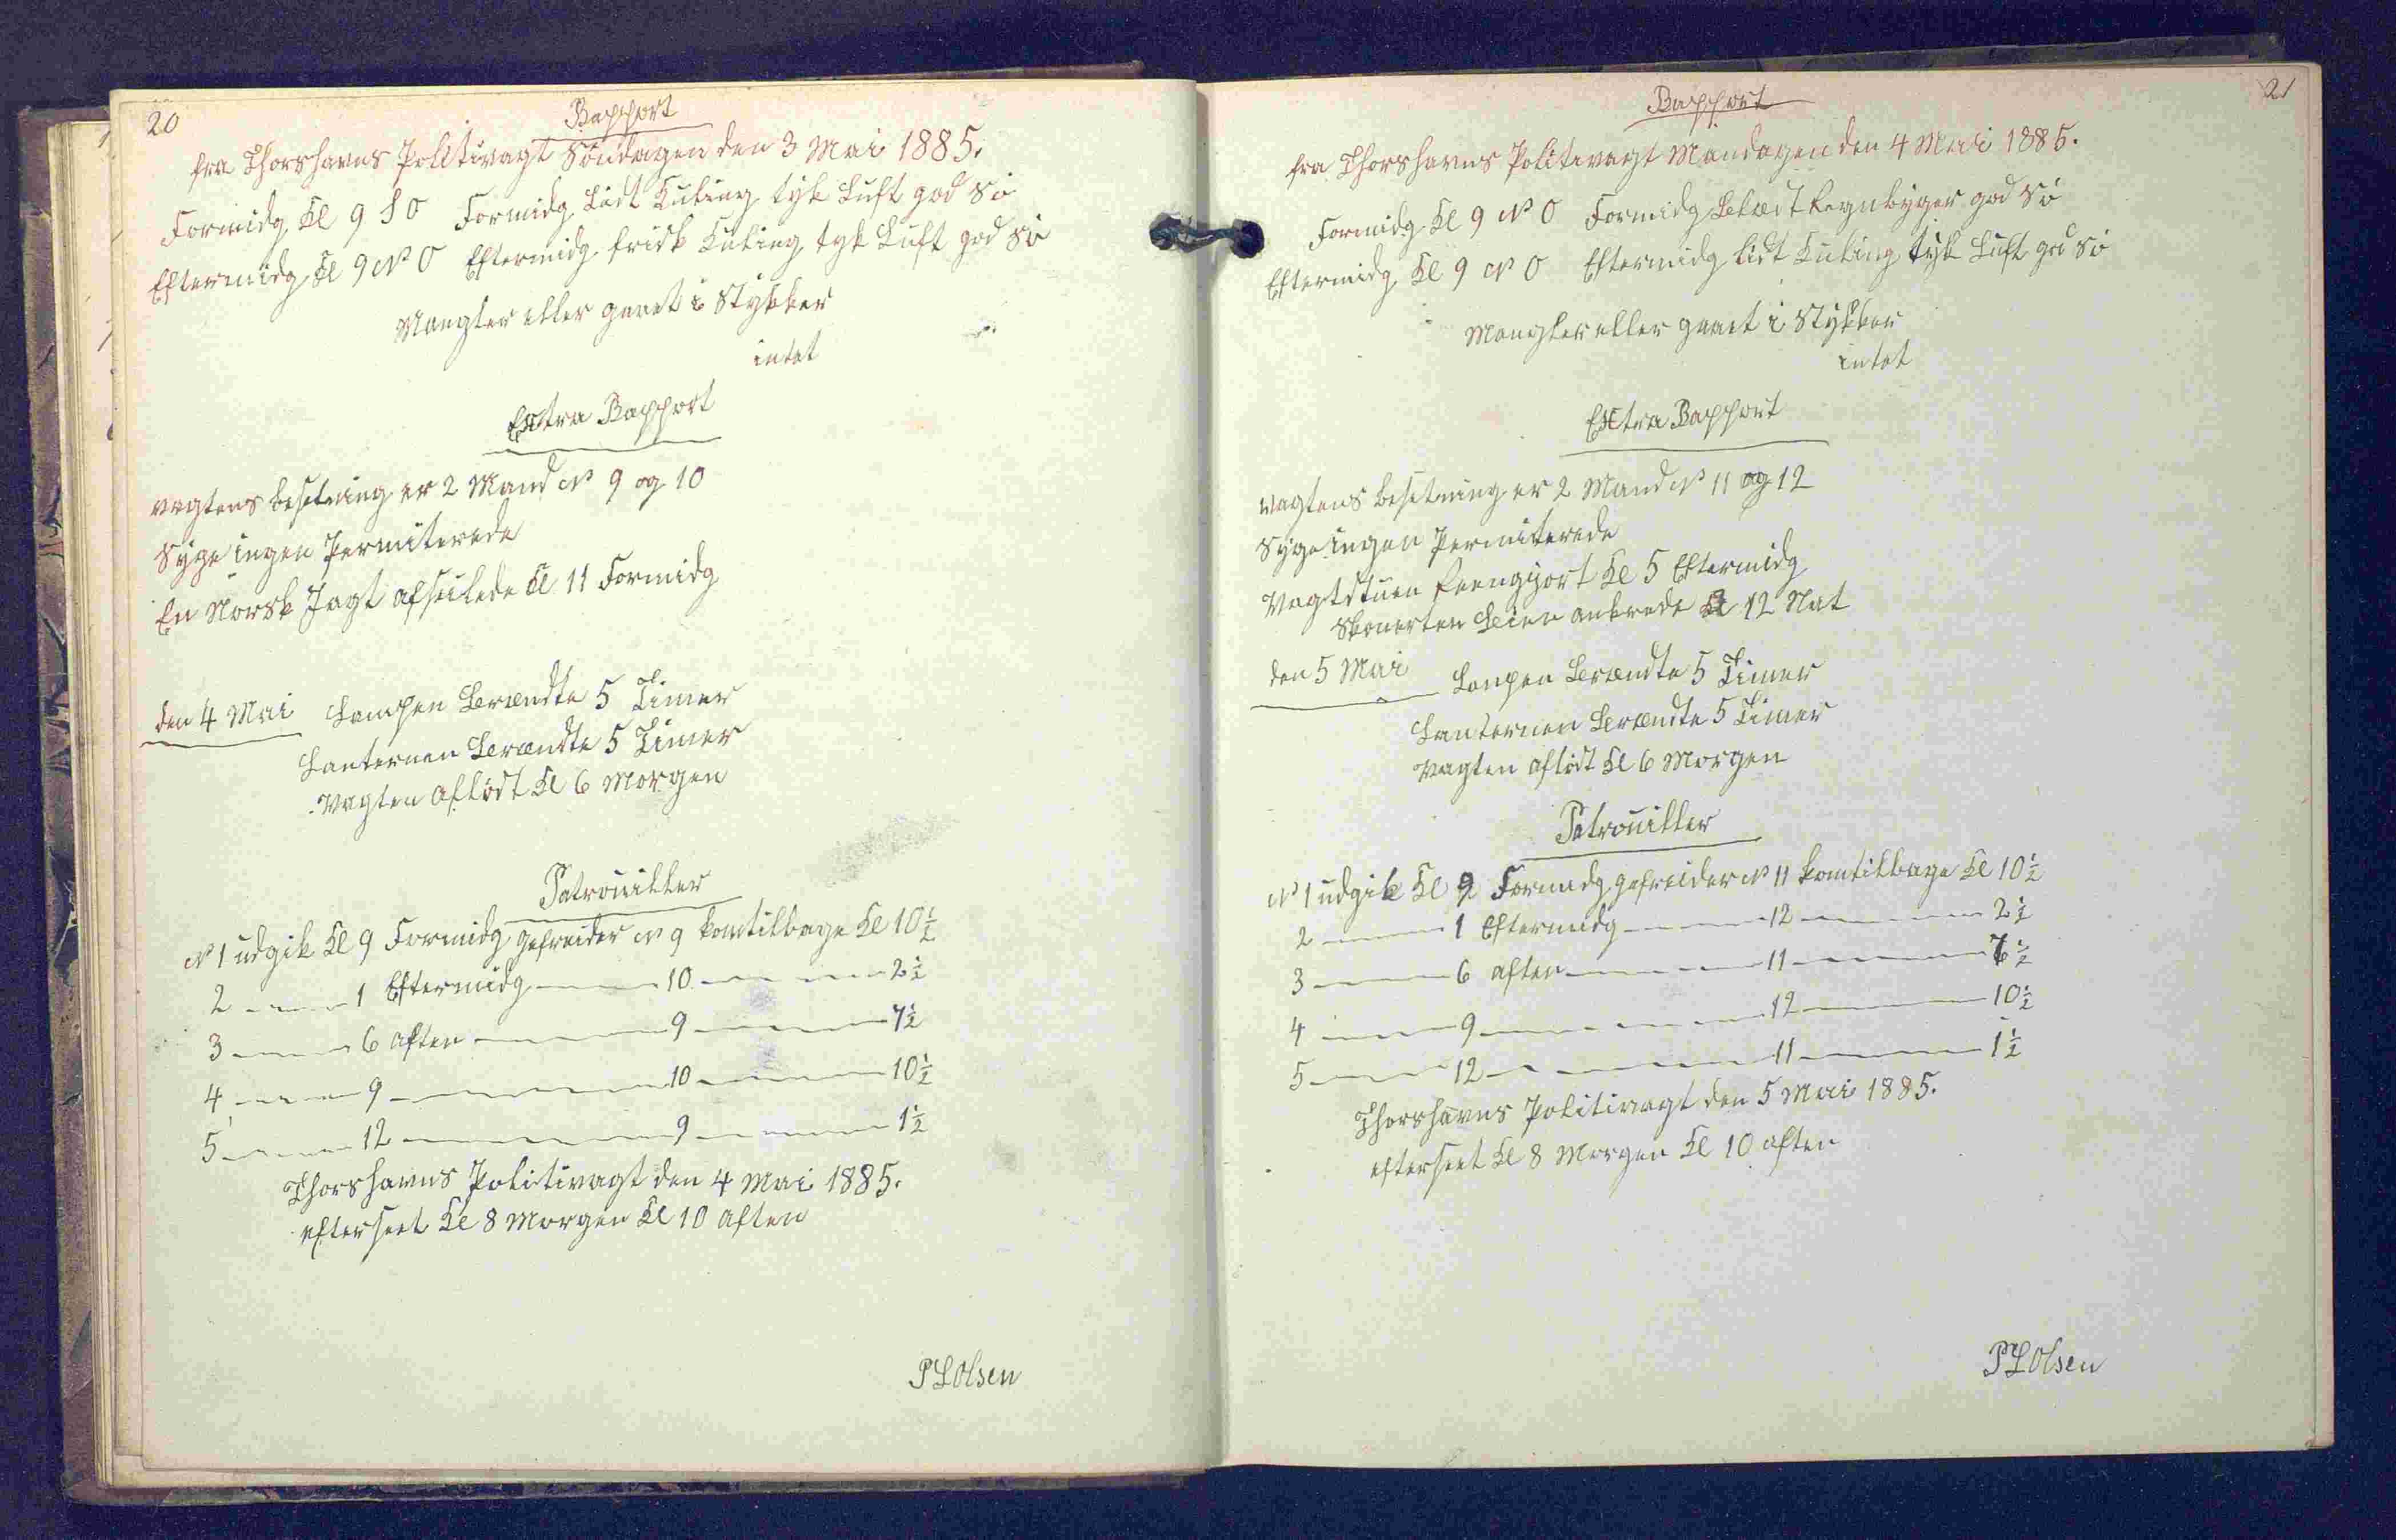 20
Rapport
fra Thorshavns Politivagt Söndagen den 3 Mai 1885.
Formidg Kl 9 S O Formidg Lidt Kuling tyk Luft god Sö
Eftermidg Kl 9 N O Eftermidg frisk Kuling tyk Luft god Sö
Mangler eller gaaet i Stykker
intet
Extra Rapport
Vagtens Besetning er 2 Mand No 9 og 10
Syge ingen Permiterede
En Norsk Jagt afseilede Kl 11 Formidg
den 4 Mai Lampen Brændte 5 Timer
Lanternen Brændte 5 Timer
Vagten aflöst Kl 6 Morgen
Patrouiller
No 1 udgik Kl 9 Formidg gefreider No 9 kom tilbage Kl 10½
2 — 1 Eftermidg — 10 — 2½
3 — 6 Aften — 9 — 7½
4 — 9 — 10 — 10½
5 — 12 — 9 — 1½
Thorshavns Politivagt den 4 Mai 1885.
efterseet Kl 8 Morgen Kl 10 Aften
P L Olsen
21
Rapport
fra Thorshavns Politivagt Mandagen den 4 Mai 1885.
Formidg Kl 9 N O Formidg Regnbyger god Sö
Eftermidg Kl 9 N O Eftermidg lidt Kuling tyk Luft god Sö
Mangler eller gaaet i Stykker
intet
Extra Rapport
Vagtens Besetning er 2 Mand No 11 og 12
Syge ingen Permiterede
Vagtstuen reengjort Kl 5 Eftermidg
Skonerten ankrede Kl 12 Nat
den 5 Mai Lanpen Brændte 5 Timer
Lanternen Brændte 5 Timer
Vagten aflöst Kl 6 Morgen
Patrouiller
No 1 udgik Kl 9 Formidg gefreider No 11 kom tilbage Kl 10½
2 — 1 Eftermidg — 12 — 2½
3 — 6 Aften — 11 — 7½
4 — 9 — 12 — 10½
5 — 12 — 11 — 1½
Thorshavns Politivagt den 5 Mai 1885.
efterseet Kl 8 Morgen Kl 10 Aften
P L Olsen